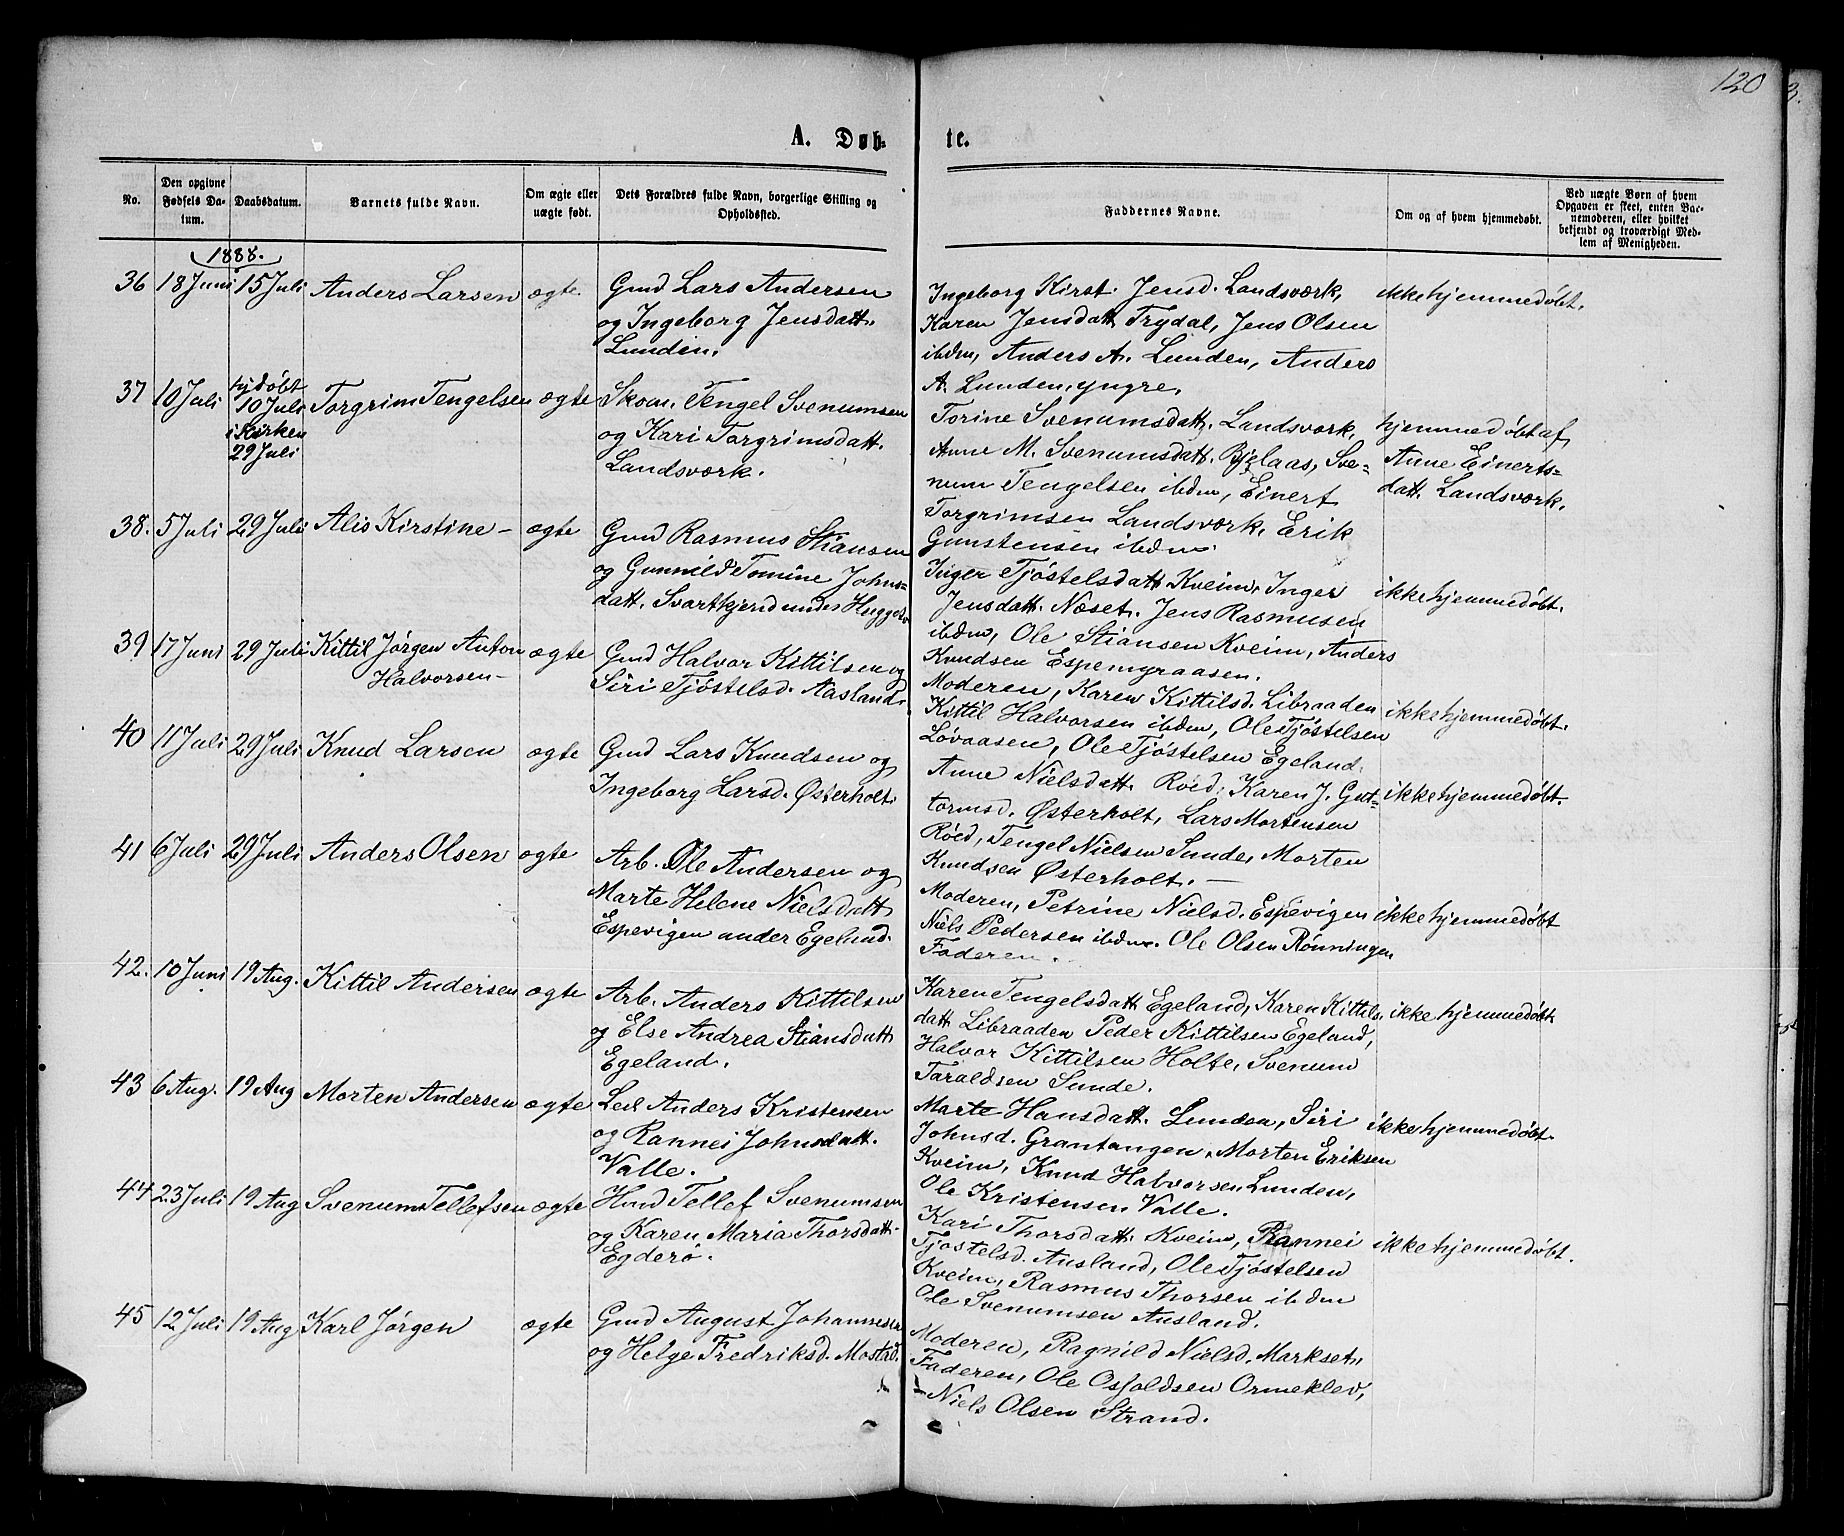 120
3.
A. Døb-
te.
No.
Den opgivne
Fødsels Da-
tum.
Daabsdatum.
Barnets fulde Navn.
Om ægte eller
uægte født.
Dets Forældres fulde Navn, borgerlige Stilling og
Opholdssted.
Faddernes Navne.
Om og af hvem hjemmedøbt.
Ved uægte Børn af hvem
Opgaven er skeet, enten Bar-
nemoderen, eller hvilket
bekjendt og troværdigt Med-
lem af Menigheden.
1888.
36 18 Juni 15 Juli Anders Larsen ægte
Gmd Lars Andersen
og Ingeborg Jensdatt.
Lunden.
Ingeborg Kirst. Jensd. Landsværk,
Karen Jensdatt Trydal, Jens Olsen
ibdm, Anders A. Lunden, Anders
A. Lunden, yngre.
ikke hjemmedøbt.
37 10 Juli hjdøbt
10 Juli
i Kirken
29 Juli
Torgrim Tengelsen ægte
Skom. Tengel Svenumsen
og Kari Torgrimsdatt.
Landsværk.
Torine Svenumsdatt. Landsværk,
Anne M. Svenumsdatt. Bjelaas, Sve-
num Tengelsen ibdm, Einert
Torgrimsen Landsværk, Erik
Gunstensen ibdm.
hjemmedøbt af
Anne Einerts-
datt. Landsværk.
38. 5 Juli 29 Juli Alis Kirstine - ægte
Gmd Rasmus Stiansen
og Gunnild Tomine Johns-
datt. Svartkjend under
Inger Tjøstelsdatt Kveim, Inger
Jensdatt. Næset. Jens Rasmusen
ibdm, Ole Stiansen Kveim, Anders
Knudsen Espemyraasen.
ikke hjemmedøbt.
39 17 Juni 29 Juli Kittil Jørgen Anton
Halvorsen -
ægte
Gmd Halvor Kittilsen og
Siri Tjøstelsd. Aasland.
Moderen, Karen Kittilsd. Libraaden
Kittil Halvorsen ibdm, Ole Tjøstelsen
Løvaasen, Ole Tjøstelsen Egeland.
ikke hjemmedøbt.
40 11 Juli 29 Juli Knud Larsen ægte
Gmd Lars Knudsen og
Ingeborg Larsd. Østerholt.
Anne Nielsdatt. Røed, Karen J. Gut-
tormsd. Østerholt, Lars Mortensen
Røed, Tengel Nielsen Sunde, Morten
Knudsen Østerholt. -
ikke hjemmedøbt.
41 6 Juli 29 Juli Anders Olsen ægte
Arb. Ole Andersen og
Marte Helene Nielsdatt
Espevigen under Egeland.
Moderen, Petrine Nielsd. Espevigen
Niels Pedersen ibdm. Ole Olsen Rønningen
Faderen.
ikke hjemmedøbt
42. 10 Juni 19 Aug. Kittil Andersen ægte
Arb. Anders Kittilsen
og Else Andrea Stiansdatt
Egeland.
Karen Tengelsdatt Egeland, Karen Kittils-
datt Libraaden Peder Kittilsen Egeland,
Halvor Kittilsen Holte, Svenum
Taraldsen Sunde.
ikke hjemmedøbt.
43 6 Aug. 19 Aug Morten Andersen ægte
Led. Anders Kristensen
og Rannei Johnsdatt.
Valle.
Marte Hansdatt. Lunden, Siri
Johnsd. Grantangen, Morten Eriksen
Kveim, Knud Halvorsen Lunden,
Ole Kristensen Valle.
ikke hjemmedøbt.
44 23 Juli 19 Aug Svenum Tellefsen ægte
Hmd Tellef Svenumsen
og Karen Maria Thorsdatt.
Egderø.
Kari Thorsdatt. Kveim, Rannei
Tjøstelsd. Ausland, Ole Tjøstelsen
Kveim, Rasmus Thorsen ibdm
Ole Svenumsen Ausland.
ikke hjemmedøbt.
45 12 Juli 19 Aug Karl Jørgen ægte
Gmd August Johannesen
og Helge Fredriksd. Mostad.
Moderen, Ragnild Nielsd. Markset,
Faderen, Ole Osfoldsen Ormeklev,
- Niels Olsen Strand.